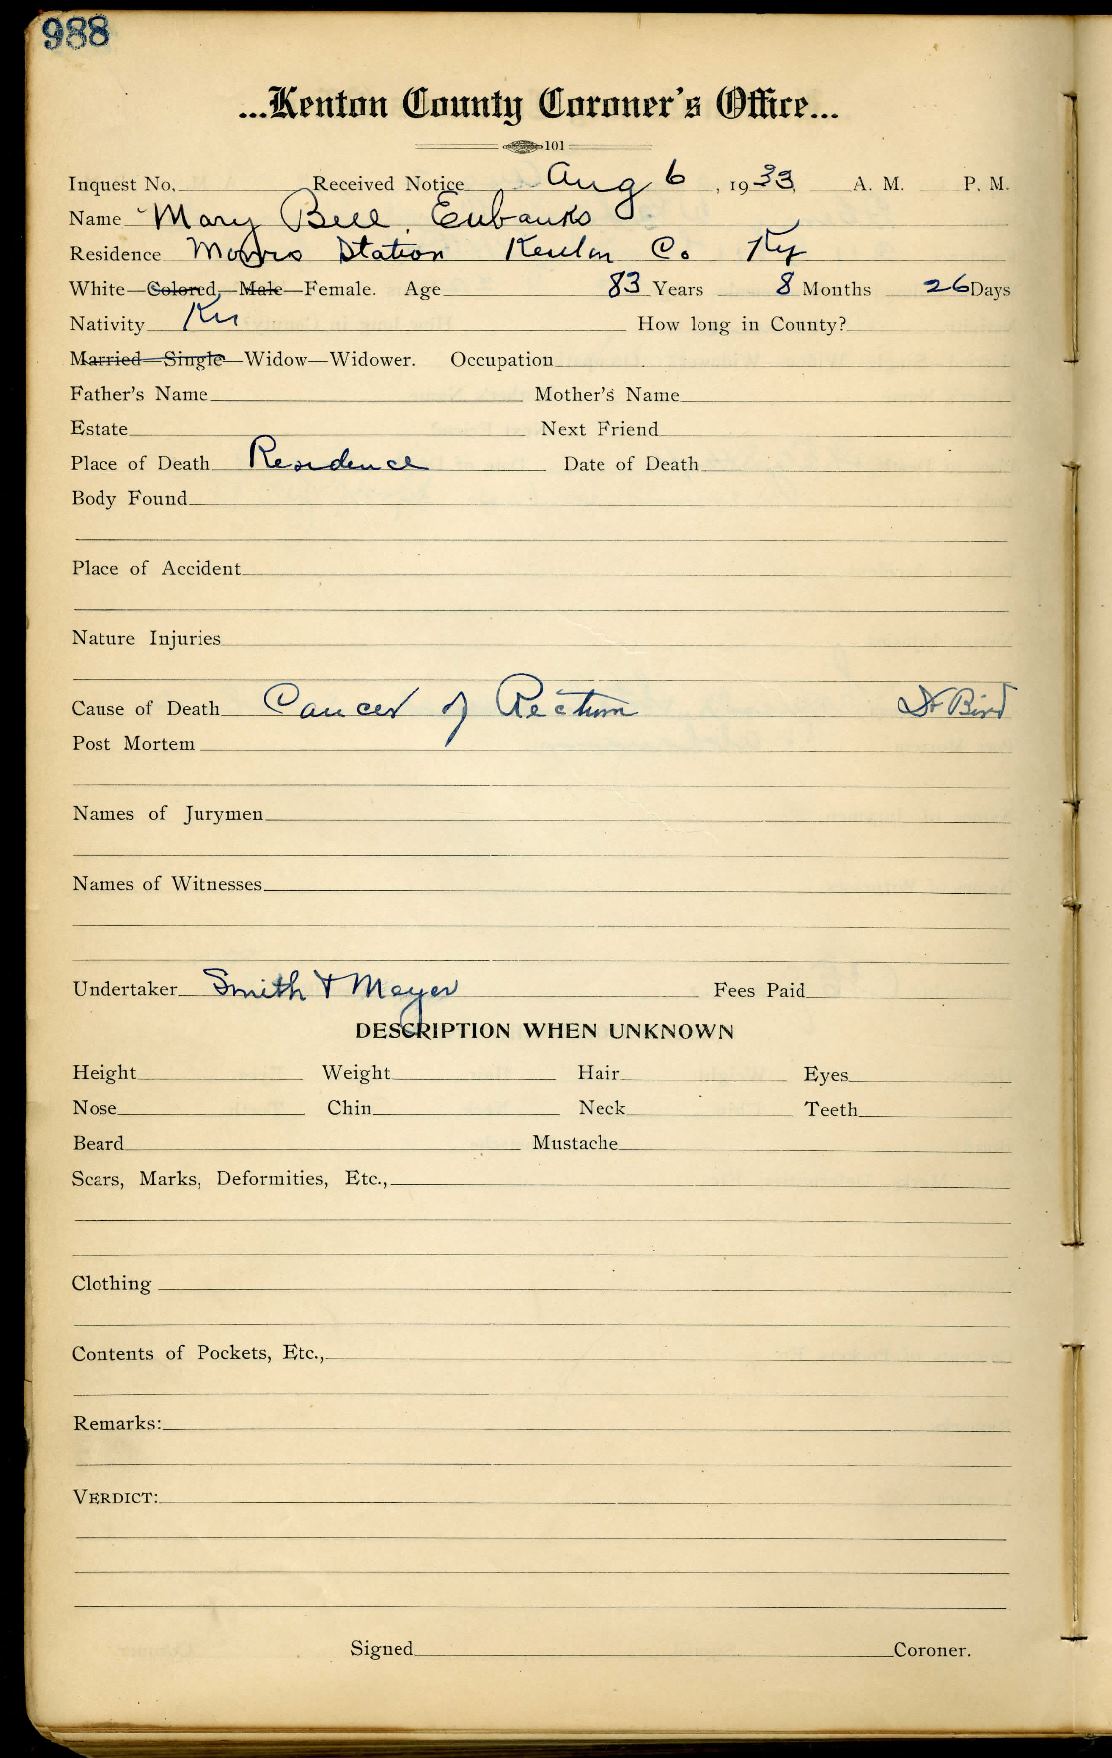 988
...Kenton County Coroner's Office...
101
Inquest No. Received Notice Aug 6, 1933 A. M. P. M.
Name Mary Bell Eubanks
Residence Morris Station Kenton Co. Ky
White—Colored—Male—Female. Age 83 Years 8 Months 26 Days
Nativity Ky How long in County?
Married—Single—Widow—Widower. Occupation
Father's Name Mother's Name
Estate Next Friend
Place of Death Residence Date of Death
Body Found
Place of Accident
Nature Injuries
Cause of Death Cancer of Rectum Dr Bird
Post Mortem
Names of Jurymen
Names of Witnesses
Undertaker Smith & Meyer Fees Paid
DESCRIPTION WHEN UNKNOWN
Height Weight Hair Eyes
Nose Chin Neck Teeth
Beard Mustache
Scars, Marks, Deformities, Etc.,
Clothing
Contents of Pockets, Etc.,
Remarks:
VERDICT:
Signed Coroner.